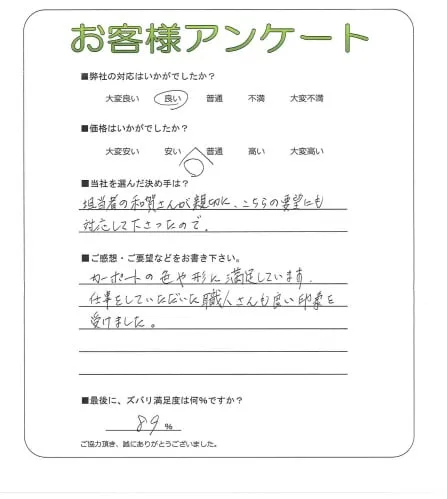 お客様アンケート
■弊社の対応はいかがでしたか？
大変良い 良い 普通 不満 大変不満
■価格はいかがでしたか？
大変安い 安い 普通 高い 大変高い
■当社を選んだ決め手は？
担当者の和賀さんが親切に、こちらの要望にも
対応して下さったので。
■ご感想・ご要望などをお書き下さい。
カーポートの色や形に満足しています。
仕事をしていただいた職人さんも良い印象を
受けました。
■最後に、ズバリ満足度は何%ですか？
89 %
ご協力頂き、誠にありがとうございました。